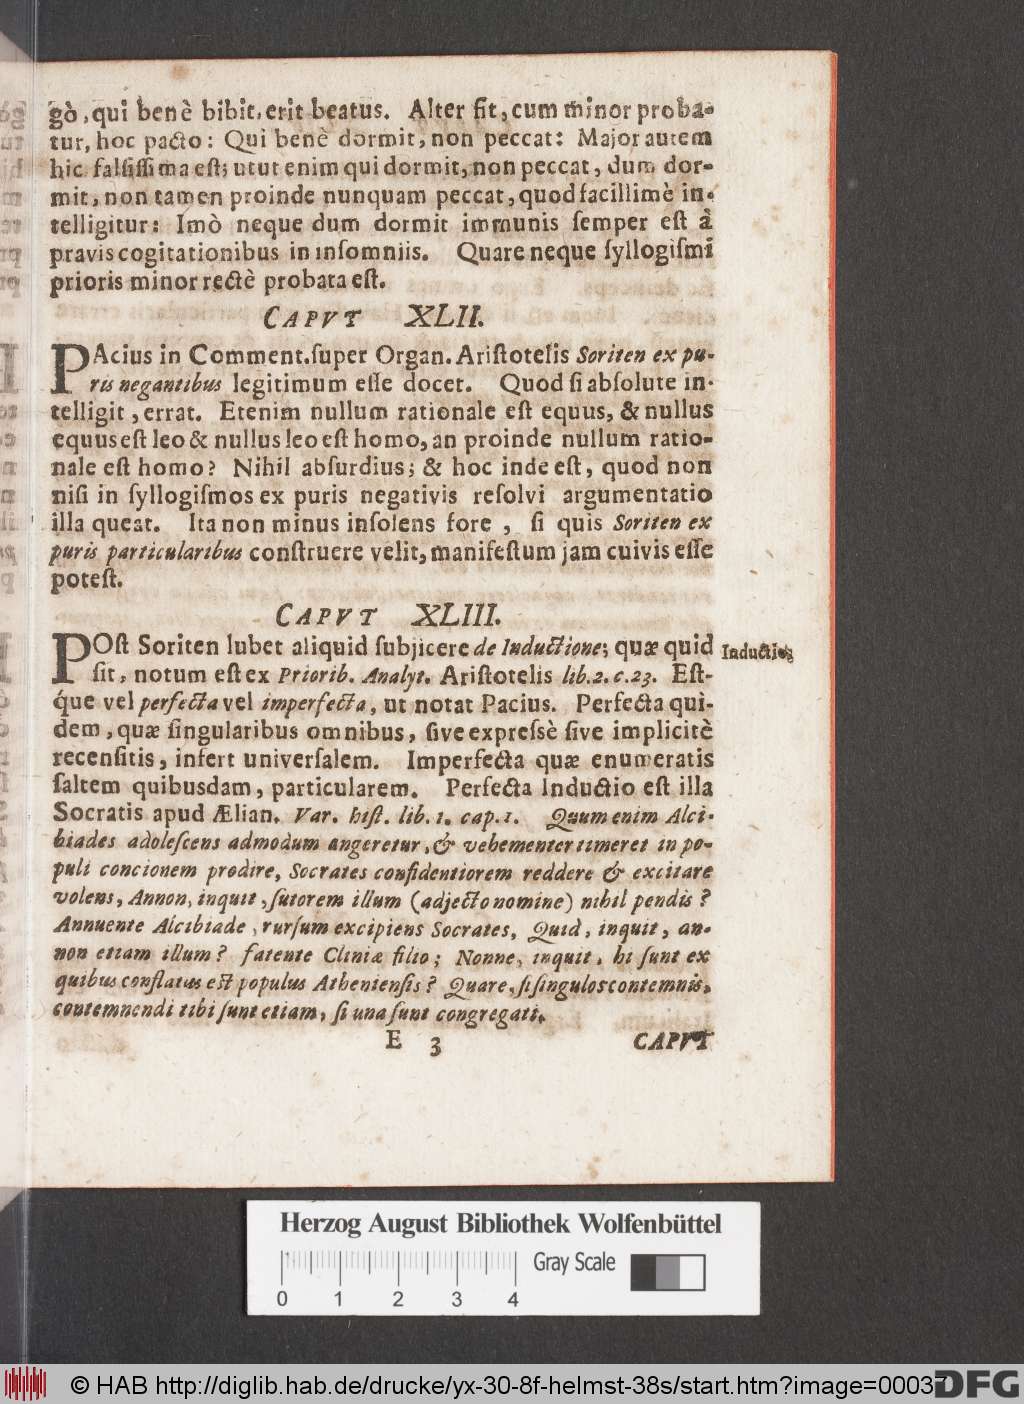 gò, qui benè bibit, erit beatus. Alter fit, cum minor proba-
tur, hoc pacto: Qui benè dormit, non peccat: Major autem
hic falsissima est; utut enim qui dormit, non peccat, dum dor-
mit, non tamen proinde nunquam peccat, quod facillimè in-
telligitur: Imò neque dum dormit immunis semper est à
pravis cogitationibus in insomniis. Quare neque syllogismi
prioris minor rectè probata est.
CAPVT XLII.
PAcius in Comment. super Organ. Aristotelis Soriten ex pu-
ris negantibus legitimum esse docet. Quod si absolute in-
telligit, errat. Etenim nullum rationale est equus, & nullus
equus est leo & nullus leo est homo, an proinde nullum ratio-
nale est homo? Nihil absurdius; & hoc inde est, quod non
nisi in syllogismos ex puris negativis resolvi argumentatio
illa queat. Ita non minus insolens fore, si quis Soriten ex
puris particularibus construere velit, manifestum jam cuivis esse
potest.
CAPVT XLIII.
POst Soriten lubet aliquid subjicere de Inductione; quæ quid
sit, notum est ex Priorib. Analyt. Aristotelis lib. 2. c. 23. Est-
q́ue vel perfecta vel imperfecta, ut notat Pacius. Perfecta qui-
dem, quæ singularibus omnibus, sive expressè sive implicitè
recensitis, infert universalem. Imperfecta quæ enumeratis
saltem quibusdam, particularem. Perfecta Inductio est illa
Socratis apud Ælian. Var. hist. lib. 1. cap. 1. Quum enim Alci-
biades adolescens admodum angeretur, & vehementer timeret in po-
puli concionem prodire, Socrates confidentiorem reddere & excitare
volens, Annon, inquit, sutorem illum (adjecto nomine) nihil pendis?
Annuente Alcibiade, rursum excipiens Socrates, Quid, inquit, an-
non etiam illum? fatente Cliniæ filio; Nonne, inquit, hi sunt ex
quibus conflatus est populus Atheniensis? Quare, si singulos contemnis,
contemnendi tibi sunt etiam, si una sunt congregati.
Inductio
E 3 CAPVT
Herzog August Bibliothek Wolfenbüttel
Gray Scale
0 1 2 3 4
© HAB http://diglib.hab.de/drucke/yx-30-8f-helmst-38s/start.htm?image=00037
DFG